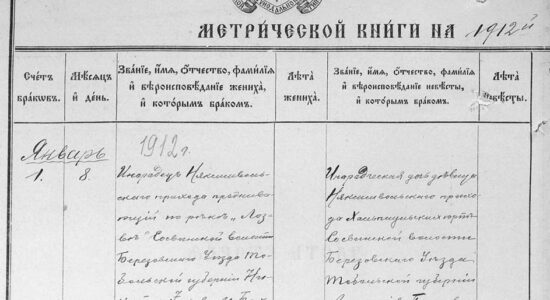 МЕТРИЧЕСКОЙ КНИГИ НА 1912й
Счетъ браковъ.
Мѣсяцъ и день.
Званіе, имя, отчество, фамилія
и вѣроисповѣданіе жениха,
и которымъ бракомъ.
Лѣта
жениха.
Званіе, имя, отчество, фамилія
и вѣроисповѣданіе невѣсты,
и которымъ бракомъ.
Лѣта
невѣсты.
Январь
1912 г.
1.
8
Инородецъ Няксимволь-
скаго прихода проживаю-
щій по рѣкѣ "Лоз-
вѣ" Сосвинской волости
Березовскаго Уѣзда То-
больской губерніи
Инородческая дочь дѣвица
Няксимвольскаго прихо-
да
Сосвинской волости
Березовскаго Уѣзда
Тобольской губерніи